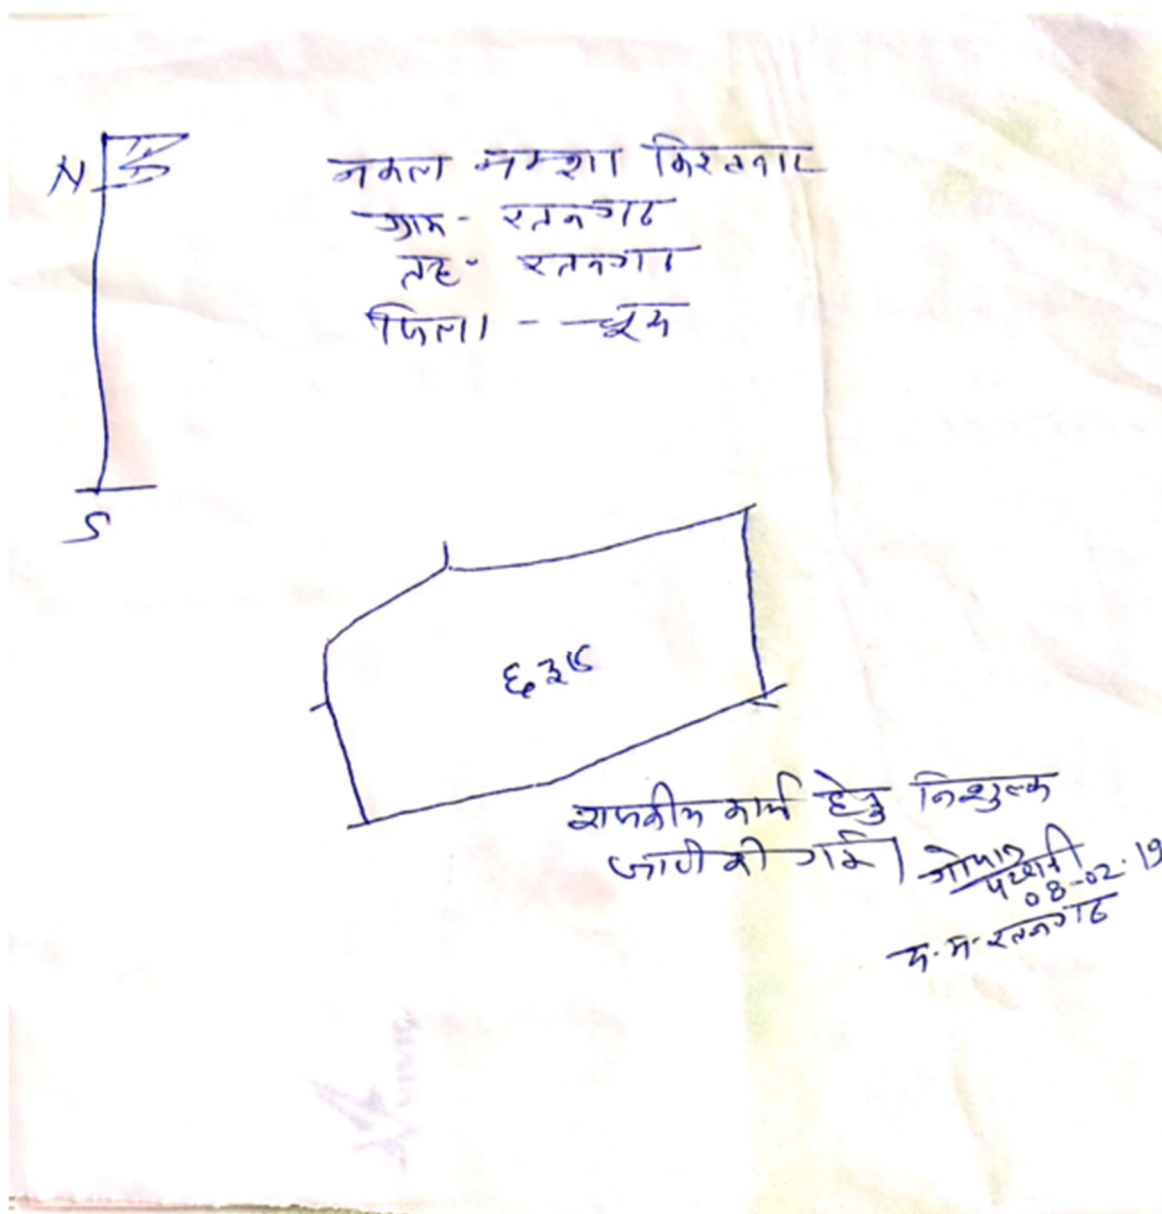 N
नकल नक्शा किस्तवार
ग्राम - रतनगढ
तह॰ रतनगढ
जिला - चूरू
S
राजकीय कार्य हेतु निशुल्क
जारी की गई।
गोपाल
पटवारी
08-02-19
प.म. रतनगढ